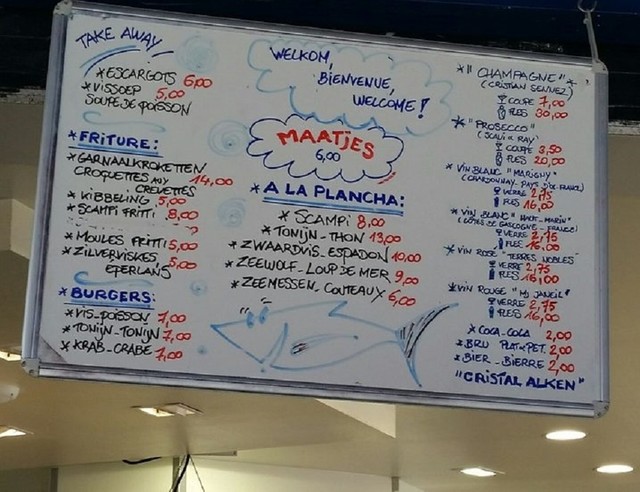 TAKE AWAY
*ESCARGOTS 6,00
*VISSOEP 5,00
SOUPE DE POISSON
*FRITURE:
*GARNAALKROKETTEN
CROQUETTES AUX 14,00
CREVETTES
*KIBBELING 5,00
*SCAMPI FRITTI 8,00
*MOULES FRITTI 5,00
*ZILVERVISKES 5,00
EPERLANS
*BURGERS:
*VIS-POISSON 7,00
*TONIJN-TONIJN 7,00
*KRAB-CRABE 7,00
WELKOM,
BIENVENUE,
WELCOME!
MAATJES
6,00
*A LA PLANCHA:
*SCAMPI 8,00
*TONIJN-THON 13,00
*ZWAARDVIS-ESPADON 10,00
*ZEEWOLF-LOUP DE MER 9,00
*ZEEMESSEN-COUTEAUX 6,00
*"CHAMPAGNE"*
(CRISTIAN SENNEZ)
COUPE 7,00
FLES 30,00
*"PROSECCO"
COUPE 3,50
FLES 20,00
*VIN BLANC "MARIGNY"
(CHARDONNAY-PAYS D'OC-FRANCE)
VERRE 2,75
FLES 16,00
*VIN BLANC "HAUT-MARIN"
(CÔTES DE GASCOGNE-FRANCE)
VERRE 2,75
FLES 16,00
*VIN ROSÉ "TERRES NOBLES"
VERRE 2,75
FLES 16,00
*VIN ROUGE
VERRE 2,75
FLES 16,00
*COCA-COLA 2,00
*BRU PLAT & PET. 2,00
*BIER-BIERRE 2,00
"CRISTAL ALKEN"